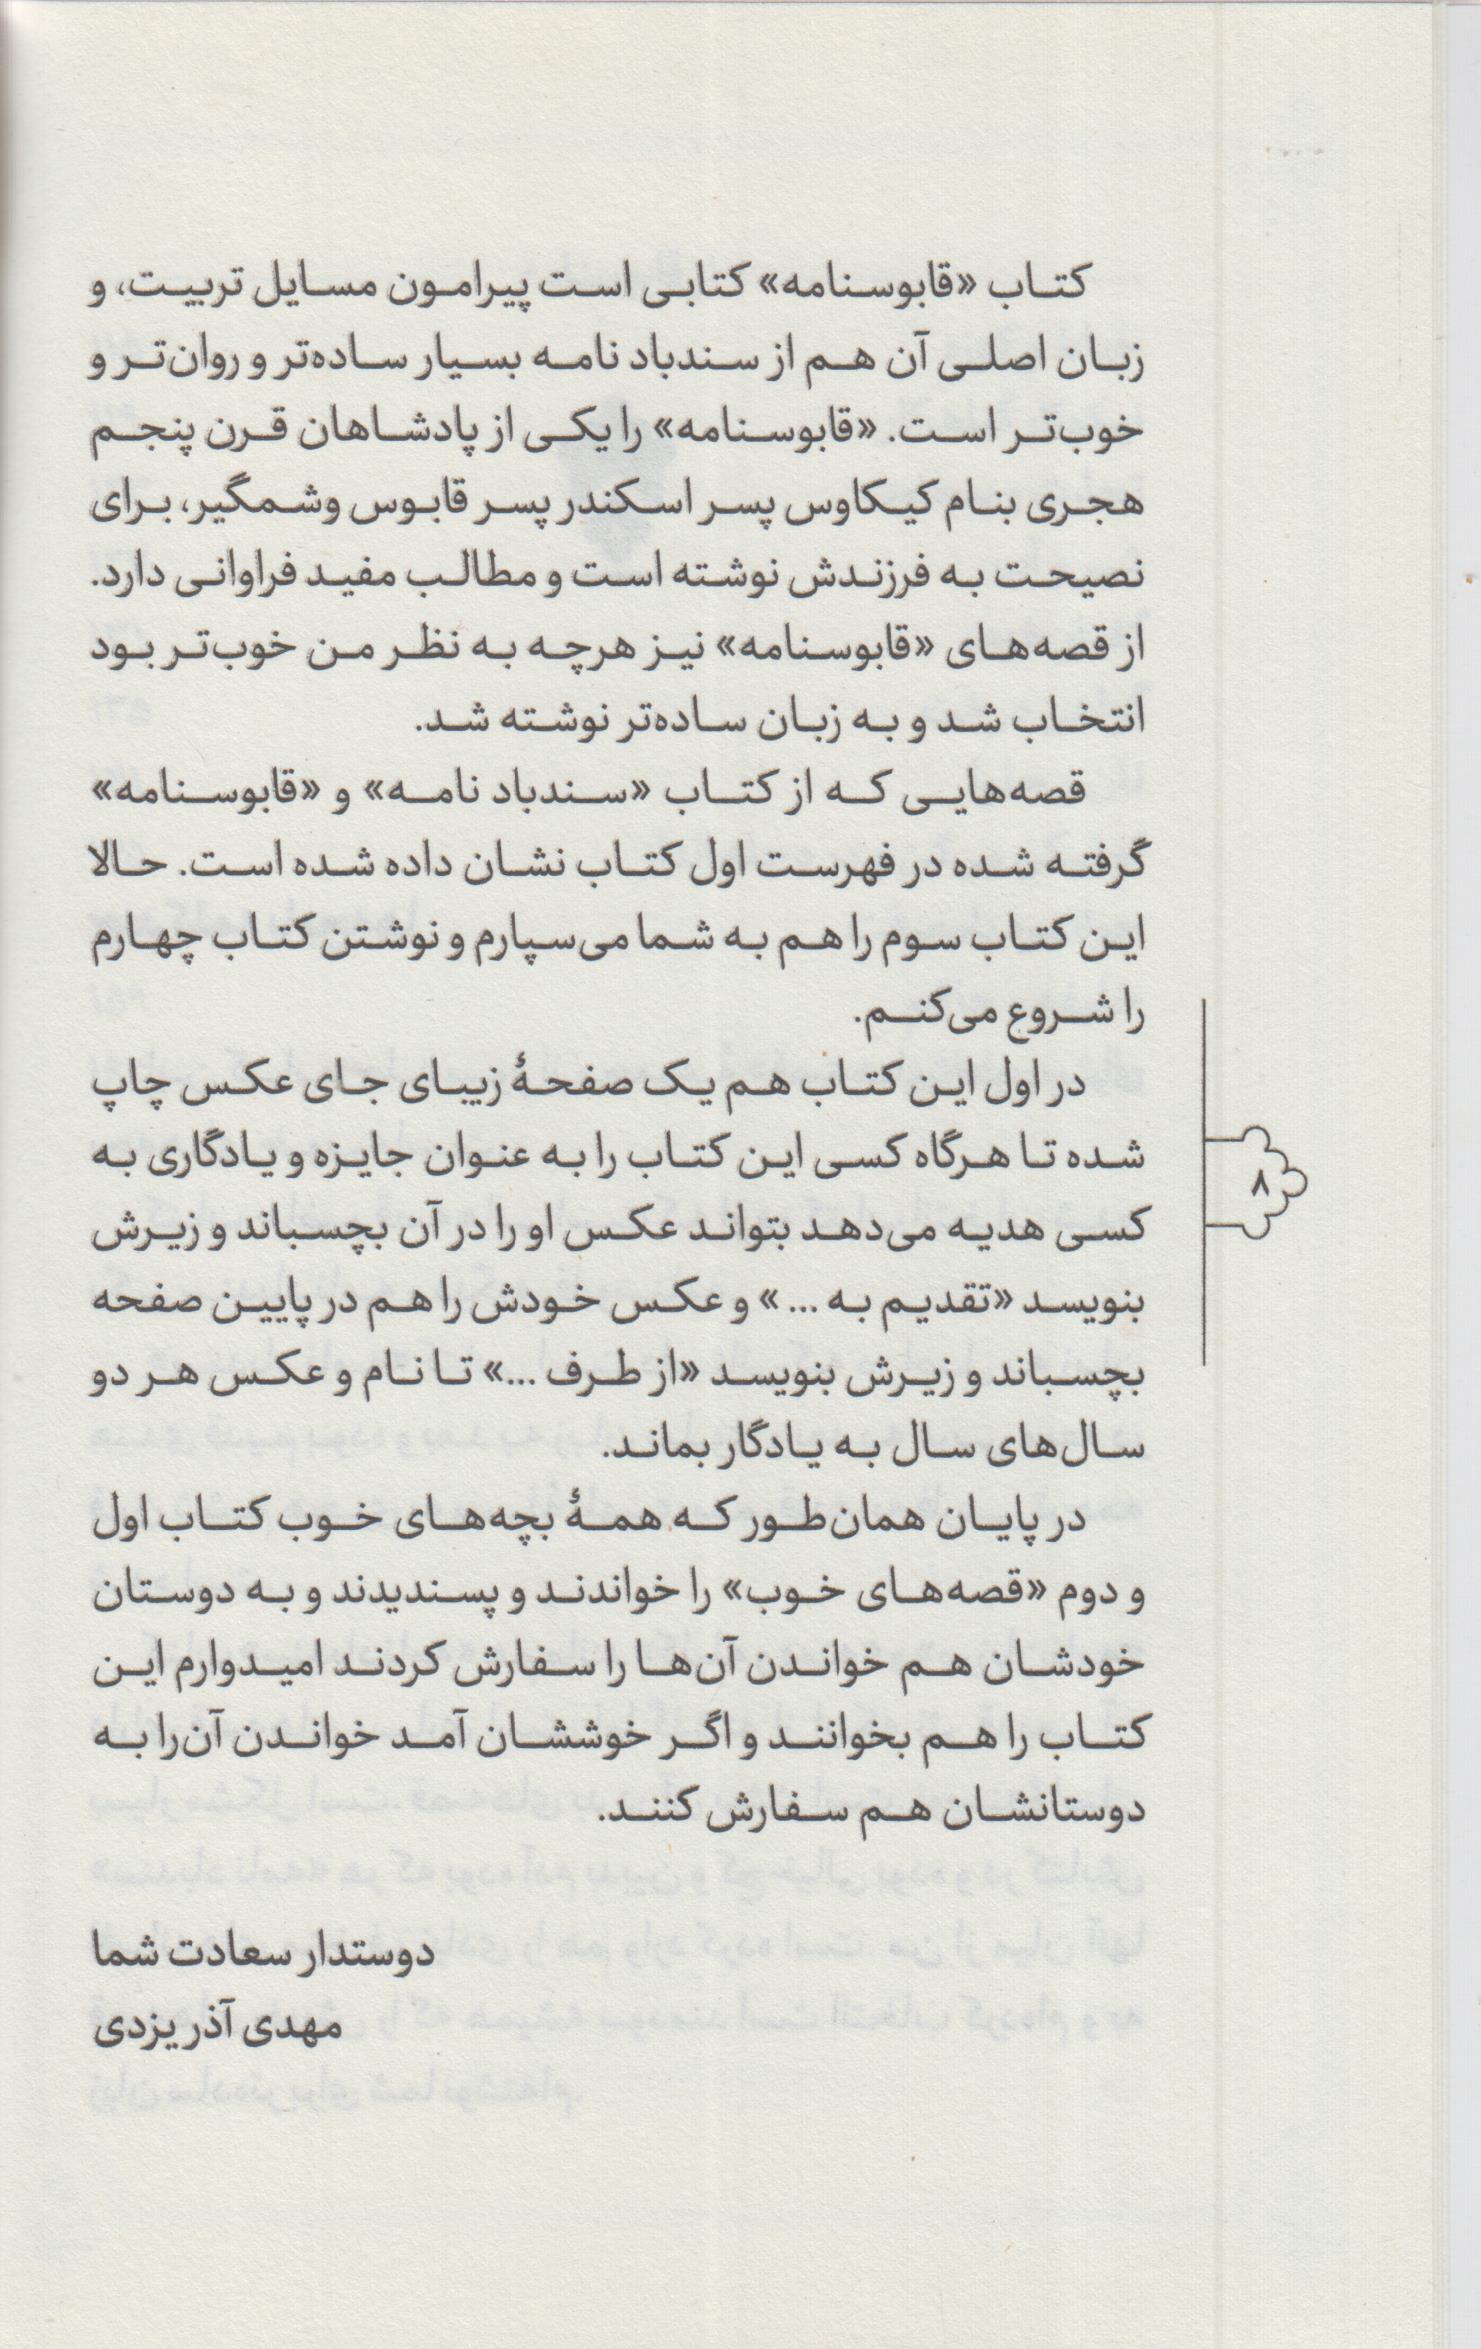 کتاب «قابوسنامه» کتابی است پیرامون مسایل تربیت، و
زبان اصلی آن هم از سندباد نامه بسیار ساده‌تر و روان‌تر و
خوب‌تر است. «قابوسنامه» را یکی از پادشاهان قرن پنجم
هجری بنام کیکاوس پسر اسکندر پسر قابوس وشمگیر، برای
نصیحت به فرزندش نوشته است و مطالب مفید فراوانی دارد.
از قصه‌های «قابوسنامه» نیز هرچه به نظر من خوب‌تر بود
انتخاب شد و به زبان ساده‌تر نوشته شد.
قصه‌هایی که از کتاب «سندباد نامه» و «قابوسنامه»
گرفته شده در فهرست اول کتاب نشان داده شده است. حالا
این کتاب سوم را هم به شما می‌سپارم و نوشتن کتاب چهارم
را شروع می‌کنم.
در اول این کتاب هم یک صفحهٔ زیبای جای عکس چاپ
شده تا هرگاه کسی این کتاب را به عنوان جایزه و یادگاری به
کسی هدیه می‌دهد بتواند عکس او را در آن بچسباند و زیرش
بنویسد «تقدیم به ...» و عکس خودش را هم در پایین صفحه
بچسباند و زیرش بنویسد «از طرف ...» تا نام و عکس هر دو
سال‌های سال به یادگار بماند.
در پایان همان‌طور که همهٔ بچه‌های خوب کتاب اول
و دوم «قصه‌های خوب» را خواندند و پسندیدند و به دوستان
خودشان هم خواندن آن‌ها را سفارش کردند امیدوارم این
کتاب را هم بخوانند و اگر خوششان آمد خواندن آن‌را به
دوستانشان هم سفارش کنند.
دوستدار سعادت شما
مهدی آذر یزدی
۸